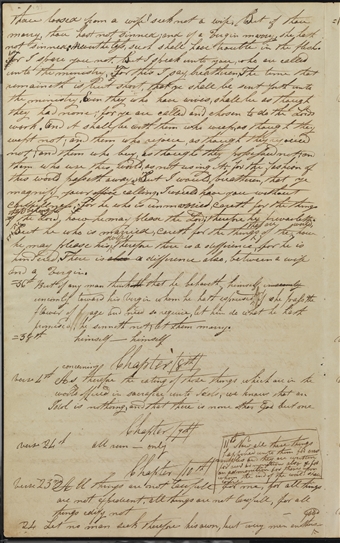 thou loosed from a wife? seek not a wife. But if thou
marry, thou hast not sinned; and if a virgin marry, she hath
not sinned. nevertheless, such shall have trouble in the flesh:
For I spare you not. But I speak unto you who are called
unto the ministry. For this I say, brethren, the time that
remaineth is but short, that ye shall be sent forth unto
the ministry. Even they who have wives, shall be as though
they had none; for ye are called and chosen to do the Lord's
work. And it shall be with them who weep, as though they
wept not; and them who rejoice, as though they rejoiced
not; and them who buy, as though they possessed not;
them who use this world, as not using it; for the fashion of
this world passeth away. But I would, brethren, that
magnify your calling. I would have you without
carefulness. For he who is unmarried, careth for the things
how he may please the Lord; therefore he prevaileth
But he who is married, careth for the things of the world how
he may please his wife; therefore there is a difference, for he is
hindered. There is a difference also, between a wife
and a virgin.
=36th But if any man think that he behaveth himself
uncomely toward his virgin whom he hath espoused, if she pass the
flower of age and need so require, let him do what he hath
promised, he sinneth not; let them marry.
=38th himself — himself
concerning Chapter 8th
verse 4th As therefore the eating of those things which are in the
world offered in sacrifice unto Idols, we know that an
Idol is nothing, and that there is none other God but one
Chapter 9th
verse 24th all run — only
11th Now all these things
happened unto them for
and they are written
for our admonition
Chapter 10th
verse 23d All things are not lawful for me, for all things
are not expedient; all things are not lawful, for all
things edify not
24 Let no man seek therefore his own, but every man another's good